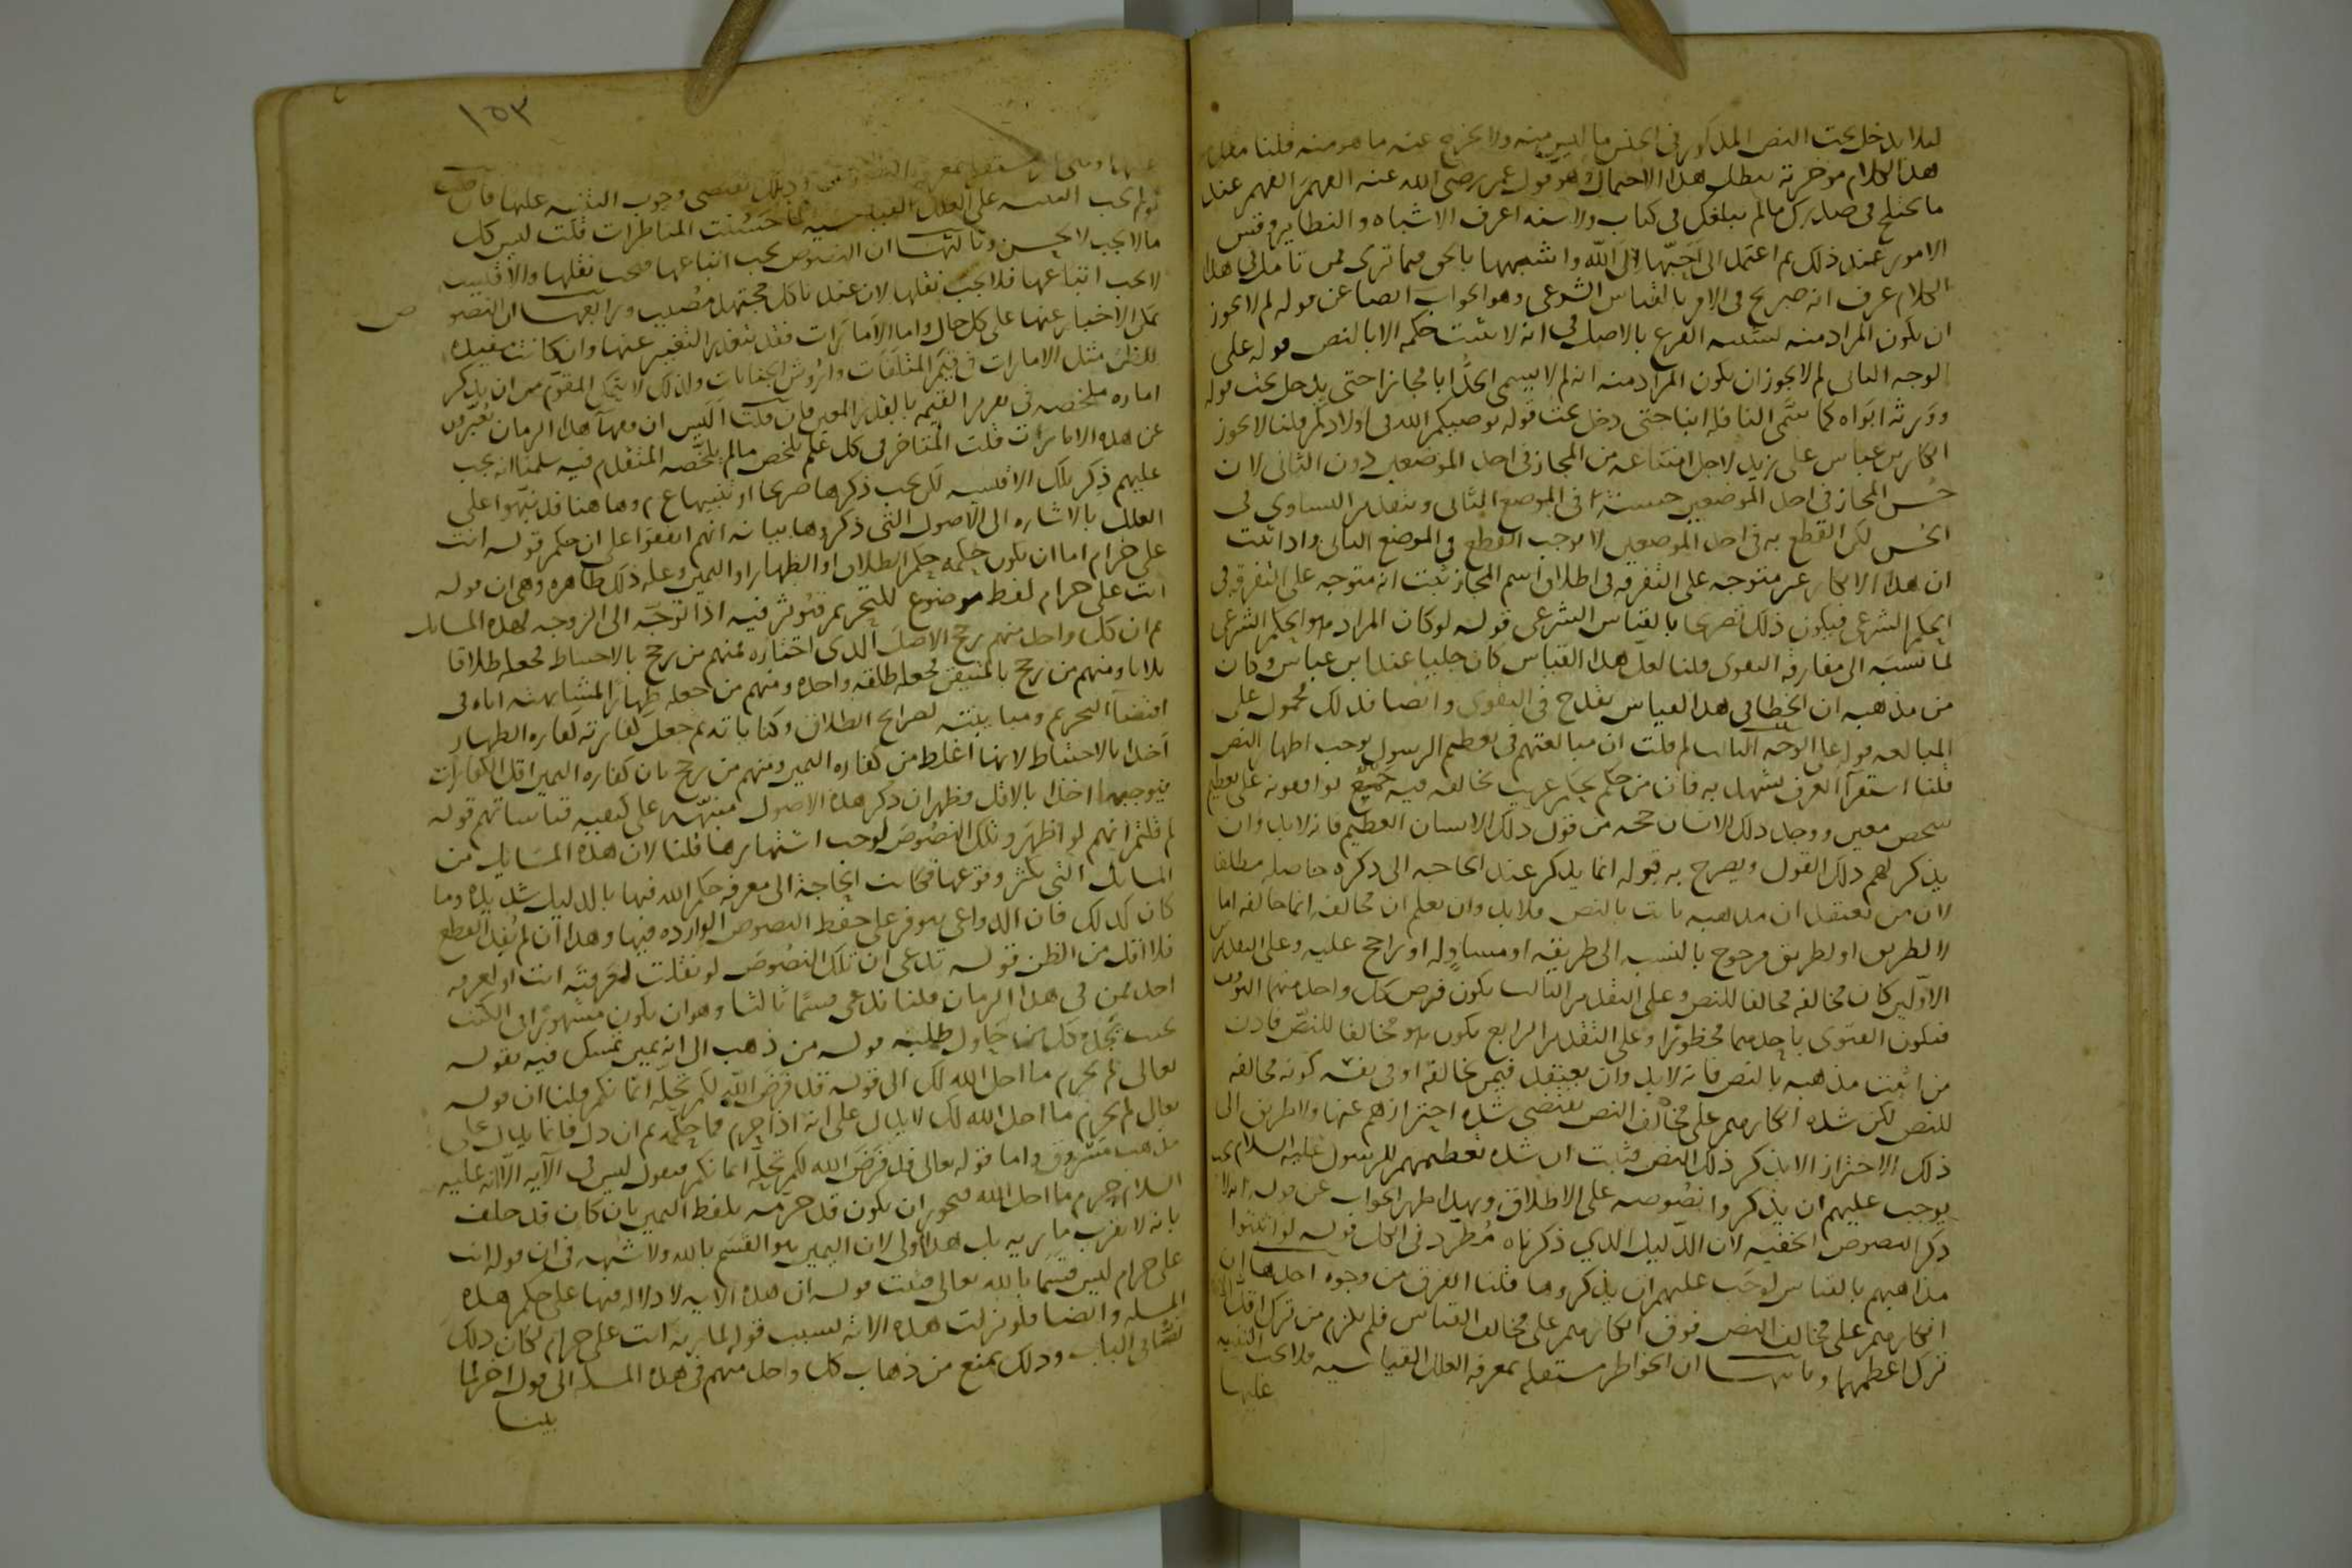 لئلا يدخل تحت النص المذكور في الجنس ما ليس منه ولا يخرج عنه ما هو منه قلنا
هذا الكلام مؤخرته تبطل هذا الاحتمال وهو قول عمر رضي الله عنه الفهم الفهم عند
ما يختلج في صدرك مالم يبلغك في كتاب ولا سنة اعرف الاشباه والنظاير وقس
الامور عند ذلك ثم اعتمد الى احبها الى الله واشبهها بالحق فيما ترى فمن تامل في هذا
الكلام عرف انه صريح في الامر بالقياس الشرعي وهو الجواب ايضا عن قوله لم لا يجوز
ان يكون المراد منه تشبيه الفرع بالاصل في انه لا يثبت حكمه الا بالنص قوله على
الوجه الثاني لم لا يجوز ان يكون المراد منه انه لم لا يسمى الجد ابا مجازا حتى يدخل تحت قوله
وورثه ابواه كما سمى النافلة ابنا حتى دخل تحت قوله يوصيكم الله في اولادكم قلنا لا يجوز
انكار بن عباس على زيد لاجل امتناعه من المجاز في احد الموضعين دون الثاني لان
حسن المجاز في احد الموضعين حسنه في الموضع الثاني وبتقدير التساوي في
الحسن لكن القطع به في احد الموضعين لا يوجب القطع في الموضع الثاني واذا ثبت
ان هذا الانكار غير متوجه على التفرقة في اطلاق اسم المجاز ثبت انه متوجه على التفرقة في
الحكم الشرعي فيكون ذلك تصريحا بالقياس الشرعي قوله لو كان المراد هو الحكم الشرعي
لما نسبه الى مفارقة التقوى قلنا لعل هذا القياس كان جليا عند ابن عباس وكان
من مذهبه ان الخطا في هذا القياس يقدح في التقوى وايضا فذلك محمول على
المبالغة قوله على الوجه الثالث لم قلت ان مبالغتهم في تعظيم الرسول يوجب اظهار النص
قلنا استقرآ العرف يشهد به فان من حكم بحكم غريب تخالفه فيه جمع توافقونه على تعظيم
شخص معين ووجد ذلك الانسان حجة من قول ذلك الانسان العظيم فانه لابد وان
يذكر لهم ذلك القول ويصرح به قوله انما يذكر عند الحاجة الى ذكره حاصلة مطلقا
لان من يعتقد ان مذهبه ثابت بالنص فلابد وان يعلم ان مخالفه انما خالفه اما
لا لطريق او لطريق مرجوح بالنسبة الى طريقه او مساو له او راجح عليه وعلى التقديرين
الاولين كان مخالفه مخالفا للنص وعلى التقدير الثالث يكون فرض كل واحد منهما التوقف
فتكون الفتوى باحدهما محظورا وعلى التقدير الرابع يكون هو مخالفا للنص فاذن
من اثبت مذهبه بالنص فانه لابد وان يعتقد فيمن خالفه او في نفسه كونه مخالفه
للنص لكن شدة انكارهم على مخالف النص يقتضي شدة احترازهم عنها ولا طريق الى
ذلك الاحتراز الا بذكر ذلك النص فثبت ان شدة تعظيمهم للرسول عليه السلام
يوجب عليهم ان يذكروا نصوصه على الاطلاق وبهذا ظهر الجواب عن قوله
ذكر النصوص الخفية لان الدليل الذي ذكرناه مطرد في الكل قوله لو اثبتوا
مذاهبهم بالقياس لوجب عليهم ان يذكروها قلنا الفرق من وجوه احدها ان
انكارهم على مخالف النص فوق انكارهم على مخالف القياس فلم يلزم من ترك اقل
ترك اعظمهما وثانيها ان الخواطر مستقلة بمعرفة العلل القياسية فلا يجب التنبيه
عليها
١٥٣
وجوب التنبيه عليها فان قلت
لو لم يجب التنبيه على العلل القياسية لما حسنت المناظرات قلت ليس كل
مالا يجب لا يحسن وثالثها ان النصوص يجب اتباعها فيجب نقلها والاقيسة
لا يجب اتباعها فلا يجب نقلها لان عندنا كل مجتهد مصيب ورابعها ان النصو
ص
يمكن الاخبار عنها على كل حال واما الامارات فقد يتعذر التعبير عنها وان كانت مفيدة
للظن مثل الامارات في قيم المتلفات واروش الجنايات ولذلك لا يتمكن المقوم من ان يذكر
امارة ملخصة في تقرير القيمة بالقدر المعين فان قلت اليس ان فقهآ هذا الزمان يعبرون
عن هذه الامارات قلت المتاخر في كل علم يلخص مالم يلخصه المتقدم فيه سلمنا انه يجب
عليهم ذكر تلك الاقيسة لكن يجب ذكرها صريحا او تنبيها ع م وها هنا قد نبهوا على
العلل بالاشارة الى الاصول التي ذكروها بيانه انهم اتفقوا على ان حكم قوله انت
على حرام اما ان يكون حكمه حكم الطلاق او الظهار او اليمين وعلة ذلك ظاهرة وهي ان قوله
انت على حرام لفظ موضوع للتحريم فتؤثر فيه اذا توجه الى الزوجة لهذه المسايل
ثم ان كل واحد منهم رجح الاصل الذي اختاره فمنهم من رجح بالاحتياط فجعله طلاقا
ثلاثا ومنهم من رجح بالمتيقن فجعله طلقة واحدة ومنهم من جعله ظهارا لمشابهته اياه في
اقتضآ التحريم ومباينته لصرايح الطلاق وكناياته ثم جعل كفارته كفارة الظهار
اخذا بالاحتياط لانها اغلظ من كفارة اليمين ومنهم من رجح بان كفارة اليمين اقل الكفارات
فيوجبها اخذا بالاقل فظهر ان ذكر هذه الاصول منبهة على كيفية قياساتهم قوله
لم قلتم انهم لو اظهروا تلك النصوص لوجب اشتهارها قلنا لان هذه المسايل من
المسايل التي يكثر وقوعها فكانت الحاجة الى معرفة حكم الله فيها بالدليل شديدة وما
كان كذلك فان الدواعي تتوفر على حفظ النصوص الواردة فيها وهذا ان لم يفد القطع
فلا اقل من الظن قوله تدعي ان تلك النصوص لو نقلت لعرفته انت او لعرفه
احد ممن في هذا الزمان قلنا ندعي قسما ثالثا وهو ان يكون مشهورا في الكتب
بحيث يجده كل من حاول طلبه قوله من ذهب الى انه يمين تمسك فيه بقوله
تعالى لم تحرم ما احل الله لك الى قوله قد فرض الله لكم تحلة ايمانكم قلنا ان قوله
تعالى لم تحرم ما احل الله لك لا يدل على انه اذا حرم فما حكمه ثم ان دل فانما يدل على
مذهب مسروق واما قوله تعالى قد فرض الله لكم تحلة ايمانكم فنقول ليس في الآية الا انه عليه
السلام حرم ما احل الله فيجوز ان يكون قد حرمه بلفظ اليمين بان كان قد حلف
بانه لا يقرب مارية بل هذا اولى لان اليمين هو القسم بالله ولا شبهه في ان قوله انت
على حرام ليس قسما بالله تعالى فثبت قوله ان هذه الاية لا دلالة فيها على حكم هذه
المسلة وايضا فلو نزلت هذه الاية بسبب قوله لمارية انت على حرام لكان ذلك
نصا في الباب وذلك يمنع من ذهاب كل واحد منهم في هذه المسلة الى قول اخر لما
بينا